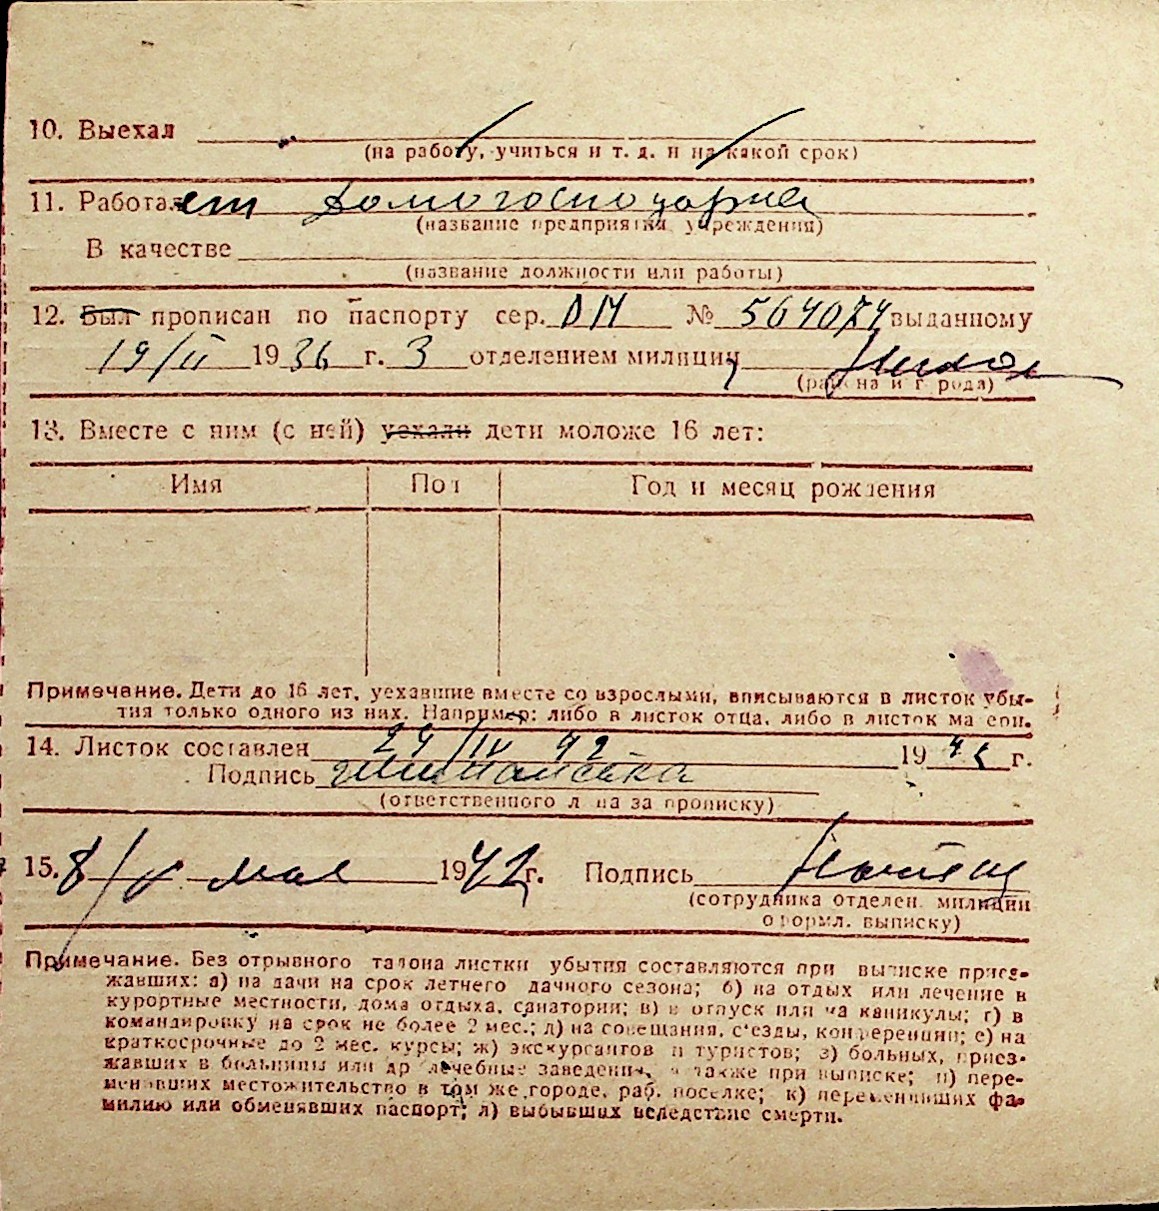 10. Выехал
(на работу, учиться и т. д. и на какой срок)
11. Работает домогосподарка
(название предприятия, учреждения)
В качестве
(название должности или работы)
12. Был прописан по паспорту сер. ДМ № 564074 выданному
19/II 1936 г. 3 отделением милиции
(района и города)
13. Вместе с ним (с ней) уехали дети моложе 16 лет:
Имя Пол Год и месяц рождения
Примечание. Дети до 16 лет, уехавшие вместе со взрослыми, вписываются в листок убы-
тия только одного из них. Например: либо в листок отца, либо в листок матери.
14. Листок составлен 24/IV 42 1942 г.
Подпись
(ответственного лица за прописку)
15. 8/V мая 1942 г. Подпись
(сотрудника отделен. милиции
оформл. выписку)
Примечание. Без отрывного талона листки убытия составляются при выписке приез-
жавших: а) на дачи на срок летнего дачного сезона; б) на отдых или лечение в
курортные местности, дома отдыха, санатории; в) в отпуск или на каникулы; г) в
командировку на срок не более 2 мес.; д) на совещания, с'езды, конференции; е) на
краткосрочные до 2 мес. курсы; ж) экскурсантов и туристов; з) больных, приез-
жавших в больницы или др лечебные заведения, а также при выписке; и) пере-
менивших местожительство в том же городе, раб. поселке; к) переменивших фа-
милию или обменявших паспорт; л) выбывших вследствие смерти.